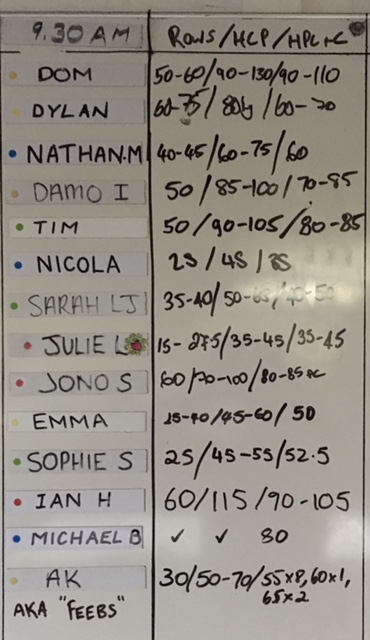 9.30AM ROWS/HCP/HPC
DOM 50-60/90-130/90-110
DYLAN 60-75/80 /60-70
NATHAN.M 40-45/60-75/60
DAMO I 50/85-100/70-85
TIM 50/90-105/80-85
NICOLA 25/45/
SARAH LJ 35-40/50-
JULIE L 15- /35-45/35-45
JONO S 60/70-100/80-85
EMMA /45-60/50
SOPHIE S 25/45-55/52.5
IAN H 60/115/90-105
MICHAEL B ✓ ✓ 80
AK 30/50-70/55x8,60x1,
65x2
AKA "FEEBS"